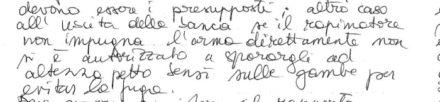 devono essere i presupposti. altro caso
all'uscita della Sancia se il rapinatore
non impugna l'arma direttamente non
si è autorizzato a sparargli ad
altezza petto bensì sulle gambe per
evitar la fuga.